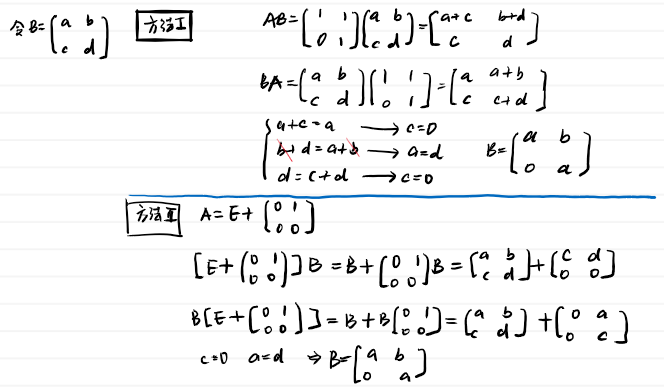 令B=[a b; c d] 方法I AB=[1 1; 0 1][a b; c d]=[a+c b+d; c d]
BA=[a b; c d][1 1; 0 1]=[a a+b; c c+d]
{a+c=a → c=0
b+d=a+b → a=d B=[a b; 0 a]
d=c+d → c=0
方法II A=E+[0 1; 0 0]
[E+(0 1; 0 0)]B=B+(0 1; 0 0)B=[a b; c d]+[c d; 0 0]
B[E+(0 1; 0 0)]=B+B(0 1; 0 0)=(a b; c d)+(0 a; 0 c)
c=0 a=d ⇒ B=[a b; 0 a]